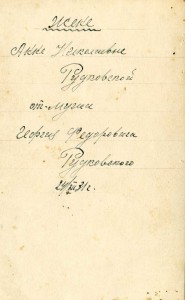 Жене
Анне Николаевне
Рудковской
от мужа
Георгия Федоровича
Рудковского
31 г.